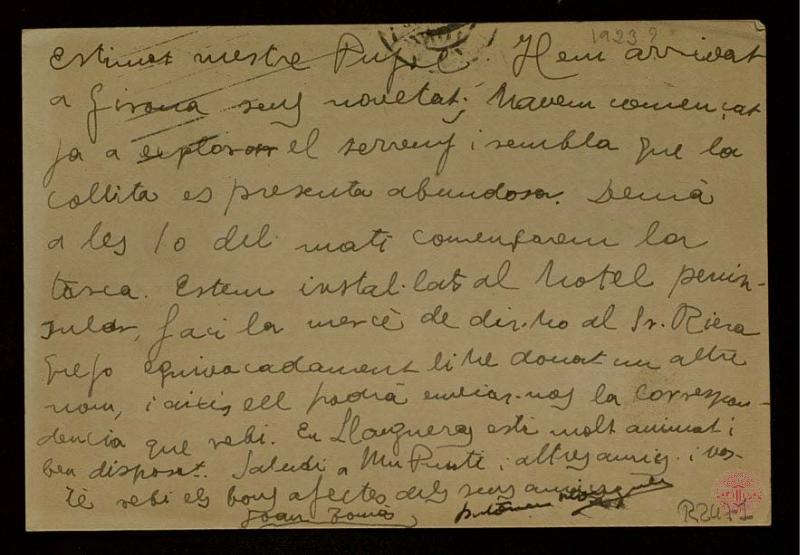 1923?
Estimat mestre Pujol. Hem arrivat
a Girona sens novetat; havem començat
ja a explorar el terreny i sembla que la
collita es presenta abundosa. Demà
a les 10 del matí començarem la
tasca. Estem instal·lats al hotel penin-
sular, faci la mercè de dir-ho al Sr. Riera
que jo equivocadament li he donat un altre
nom, i aixís ell podrà enviar-nos la correspon-
dencia que rebi. En Llongueras está molt animat i
ben disposat. Saludi a Mn Punti i altres amics i vos-
té rebi els bons afectes dels seus amics
Joan Tomàs
R2471